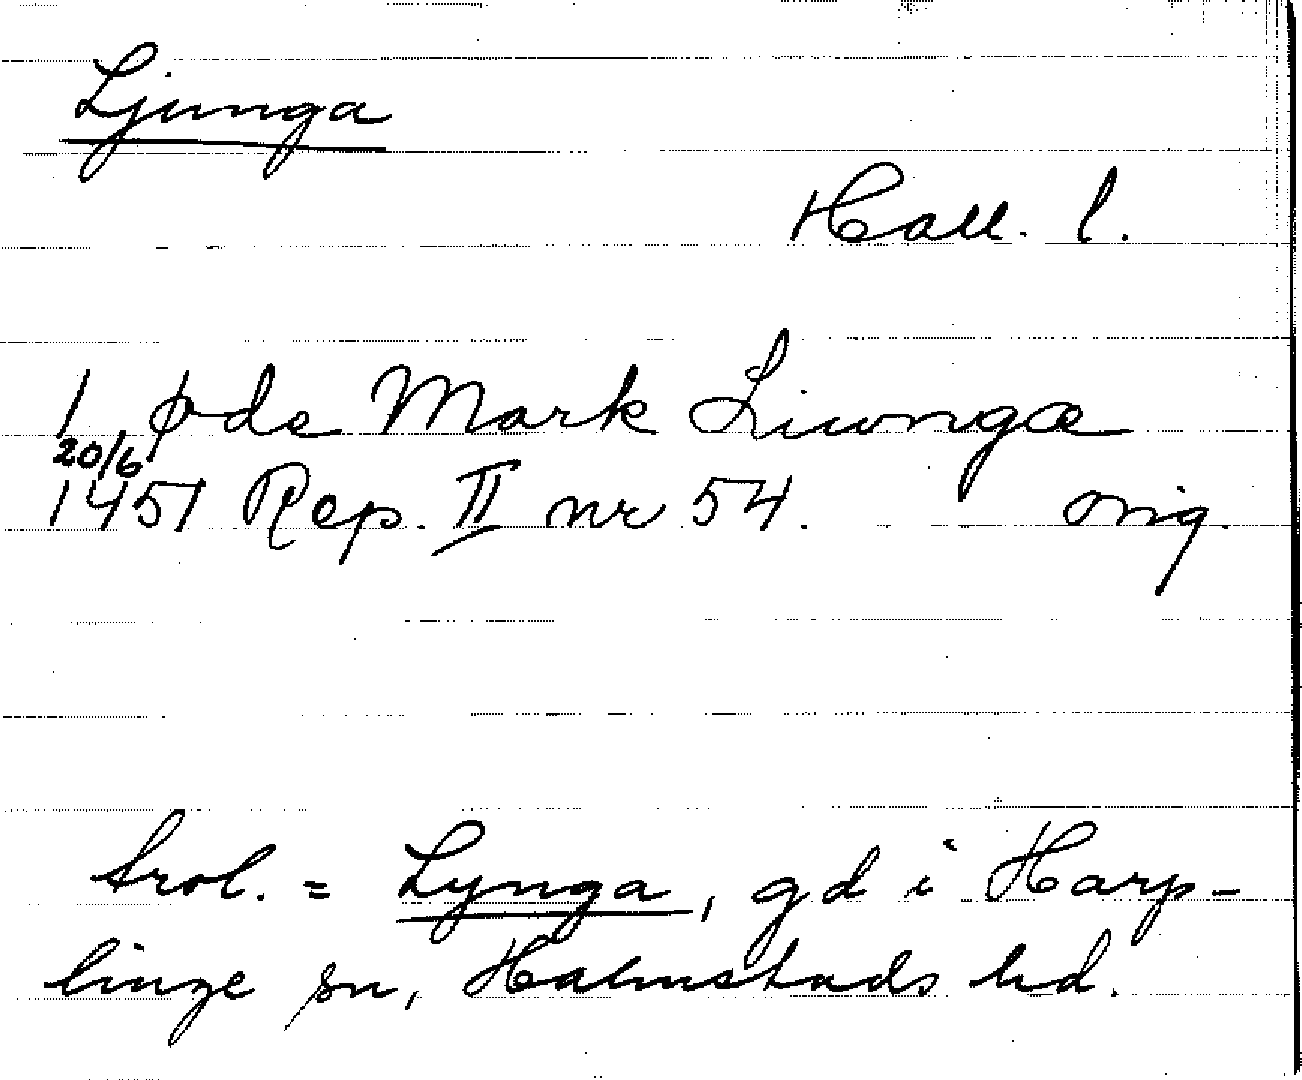 Ljunga
Hall. l.
1 øde Mark Liwngæ
20/6
1451 Rep. II nr 54. orig.
trol. = Lynga, gd i Harp-
linge sn, Halmstads hd.